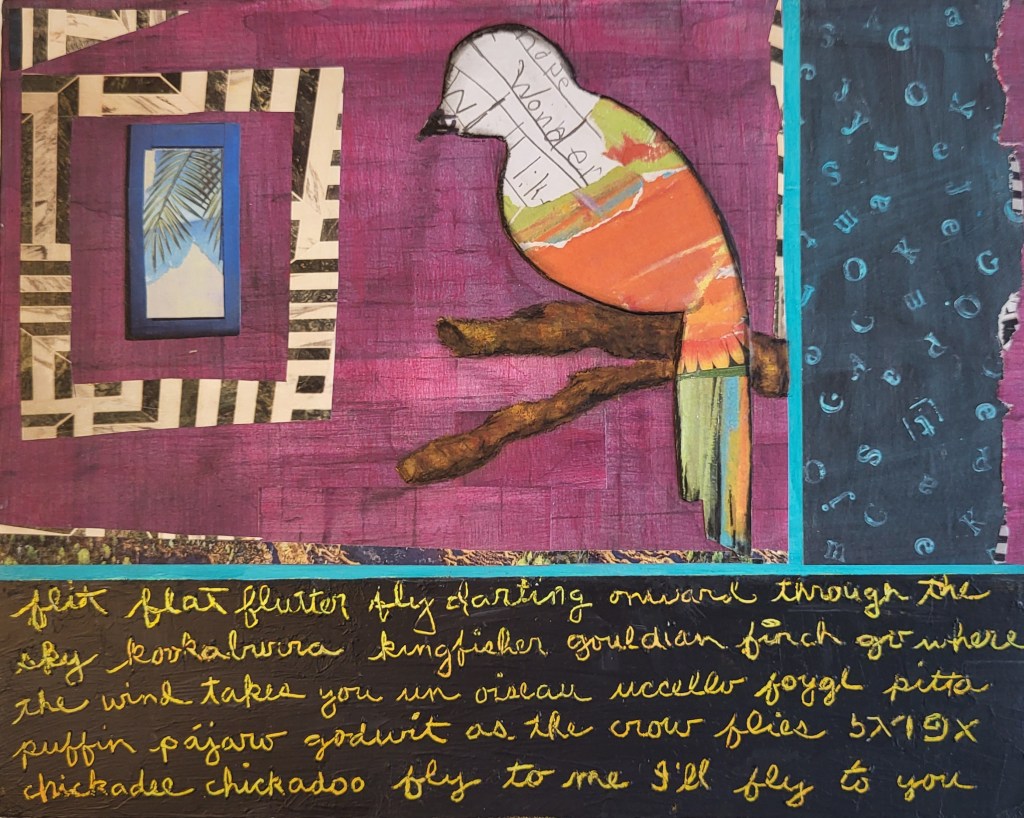 Wonder
flit flat flutter fly darting onward through the
sky kookaburra kingfisher gouldian finch go where
the wind takes you un oiseau uccello foygl pitta
puffin pájaro godwit as the crow flies
chickadee chickadoo fly to me I'll fly to you